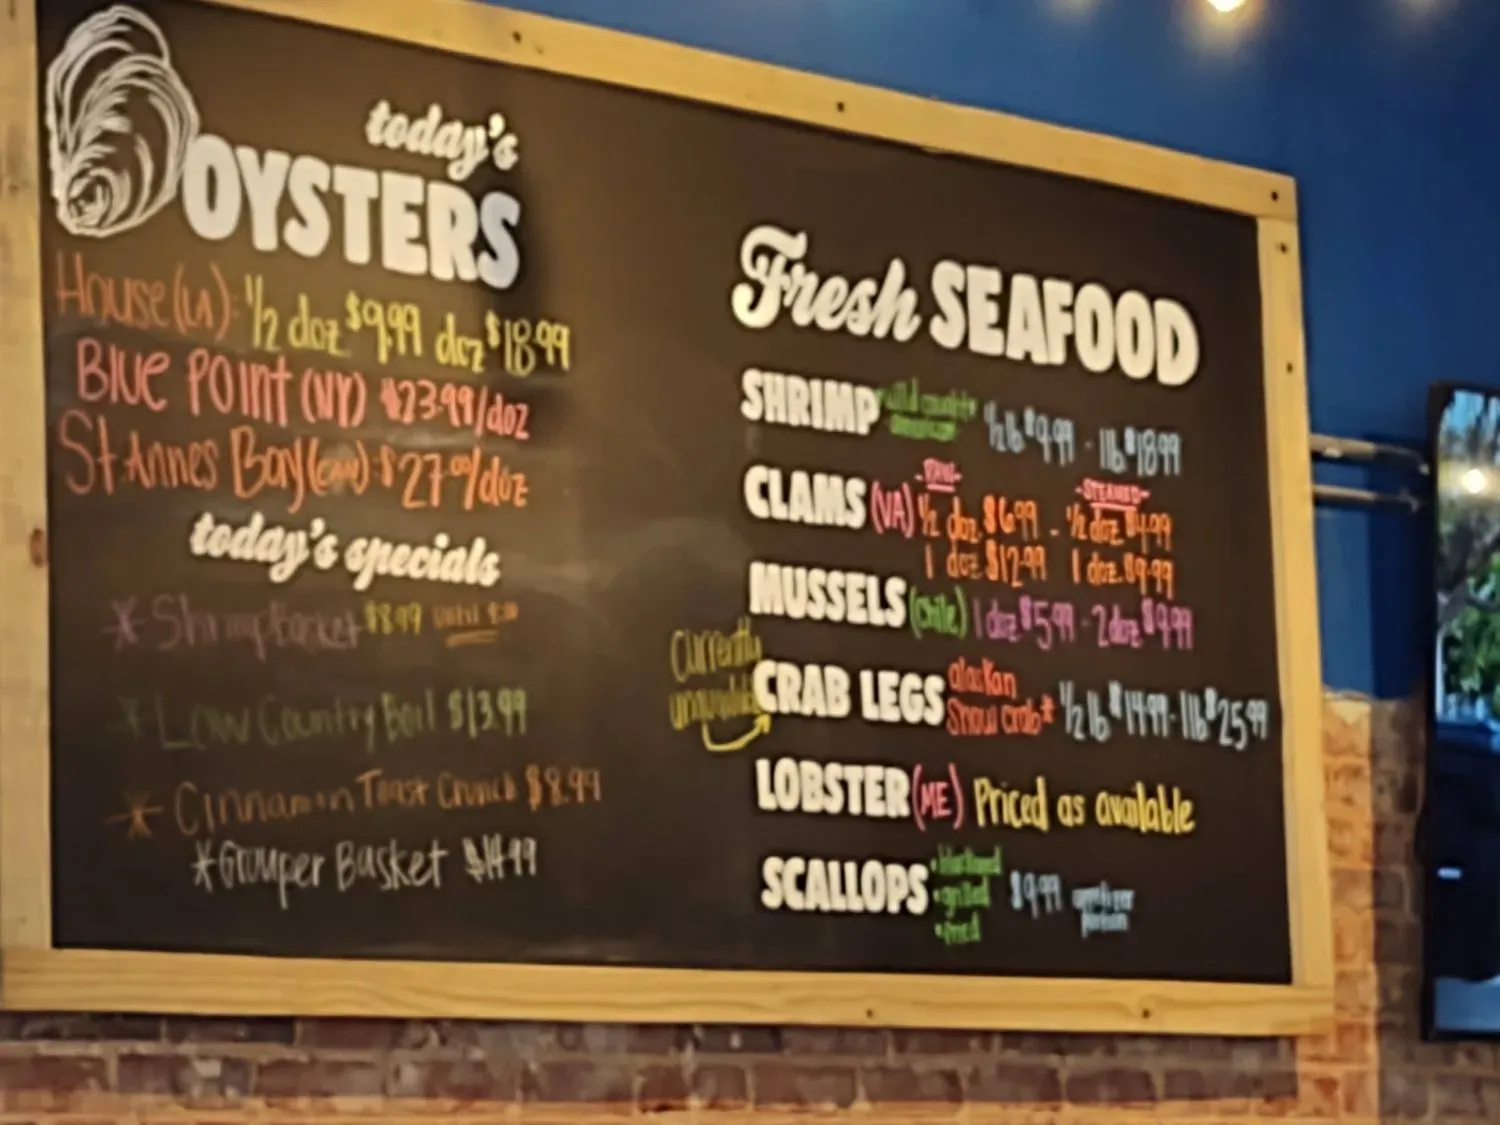 today's
OYSTERS
House (LA): 1/2 doz $9.99 doz $18.99
Blue Point (NY) $23.99/doz
St. Annes Bay (CAN): $27.00/doz
today's specials
* Shrimp Basket $8.99 until
* Low Country Boil $13.99
* Cinnamon Toast Crunch $8.99
* Grouper Basket $14.99
Fresh SEAFOOD
SHRIMP wild caught american 1/2 lb $9.99 - 1 lb $18.99
-RAW- -STEAMED-
CLAMS (VA) 1/2 doz $6.99 - 1/2 doz $4.99
1 doz $12.99 1 doz $9.99
MUSSELS (Chile) 1 doz $5.99 - 2 doz $9.99
currently unavailable
CRAB LEGS alaskan snow crab* 1/2 lb $14.99 - 1 lb $25.99
LOBSTER (ME) Priced as available
SCALLOPS • blackened • grilled • fried $9.99 appetizer portion